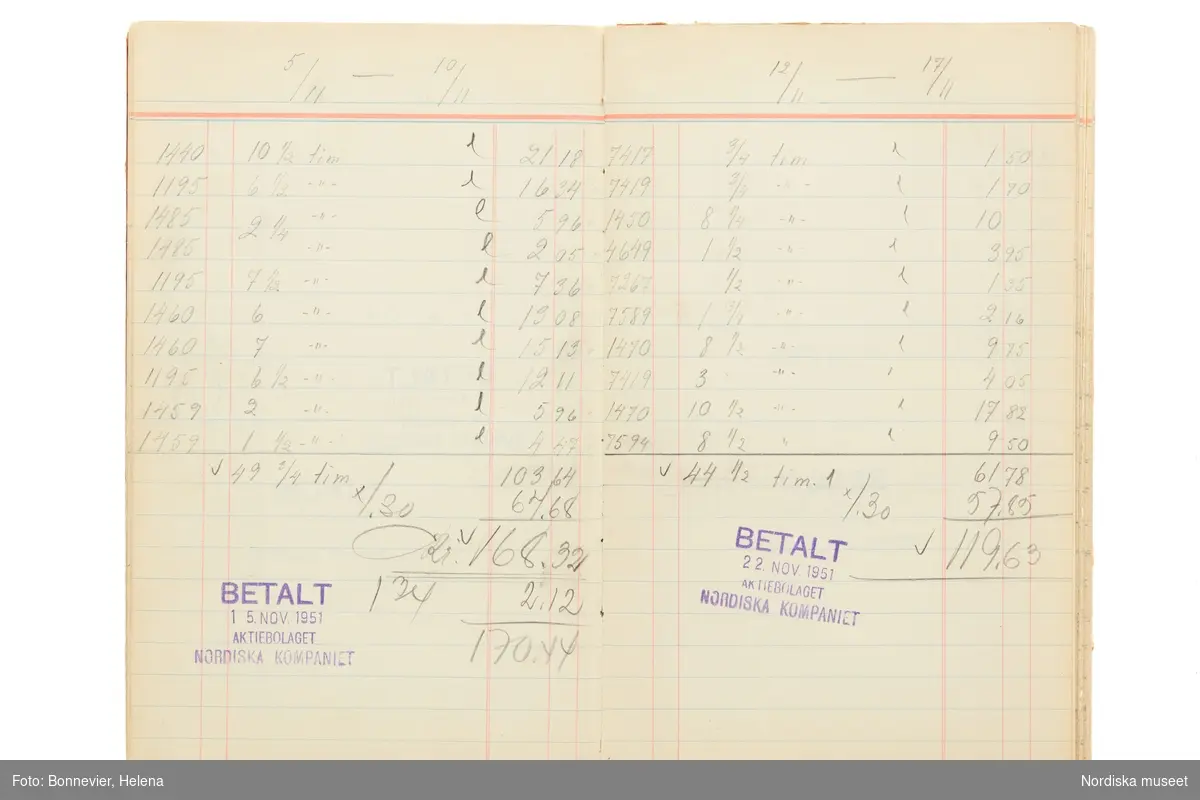 5/11 — 10/11
1440 10 1/2 tim l 21 18
1195 6 1/2 -"- l 16 34
1485 2 1/4 -"- l 5 96
1485 -"- l 2 05
1195 7 1/2 -"- l 7 36
1460 6 -"- l 13 08
1460 7 -"- l 15 13
1195 6 1/2 -"- l 12 11
1459 2 -"- l 5 96
1459 1 1/2 -"- l 4 47
√ 49 3/4 tim 103 64
x/1.30 64,68
Kr. √ 168.32
134 2.12
170.44
BETALT
15. NOV. 1951
AKTIEBOLAGET
NORDISKA KOMPANIET
12/11 — 17/11
7417 3/4 tim l 1 50
7419 3/4 -"- l 1 70
1450 8 3/4 -"- l 10
4649 1 1/2 -"- l 3 95
7267 1/2 -"- l 1 35
7589 1 3/4 -"- l 2 16
1470 8 1/2 -"- l 9 75
7419 3 -"- l 4 05
1470 10 1/2 -"- l 17 82
7594 8 1/2 " l 9 50
√ 44 1/2 tim. 1 61 78
x/1.30 57,85
√ 119,63
BETALT
22. NOV. 1951
AKTIEBOLAGET
NORDISKA KOMPANIET
Foto: Bonnevier, Helena
Nordiska museet